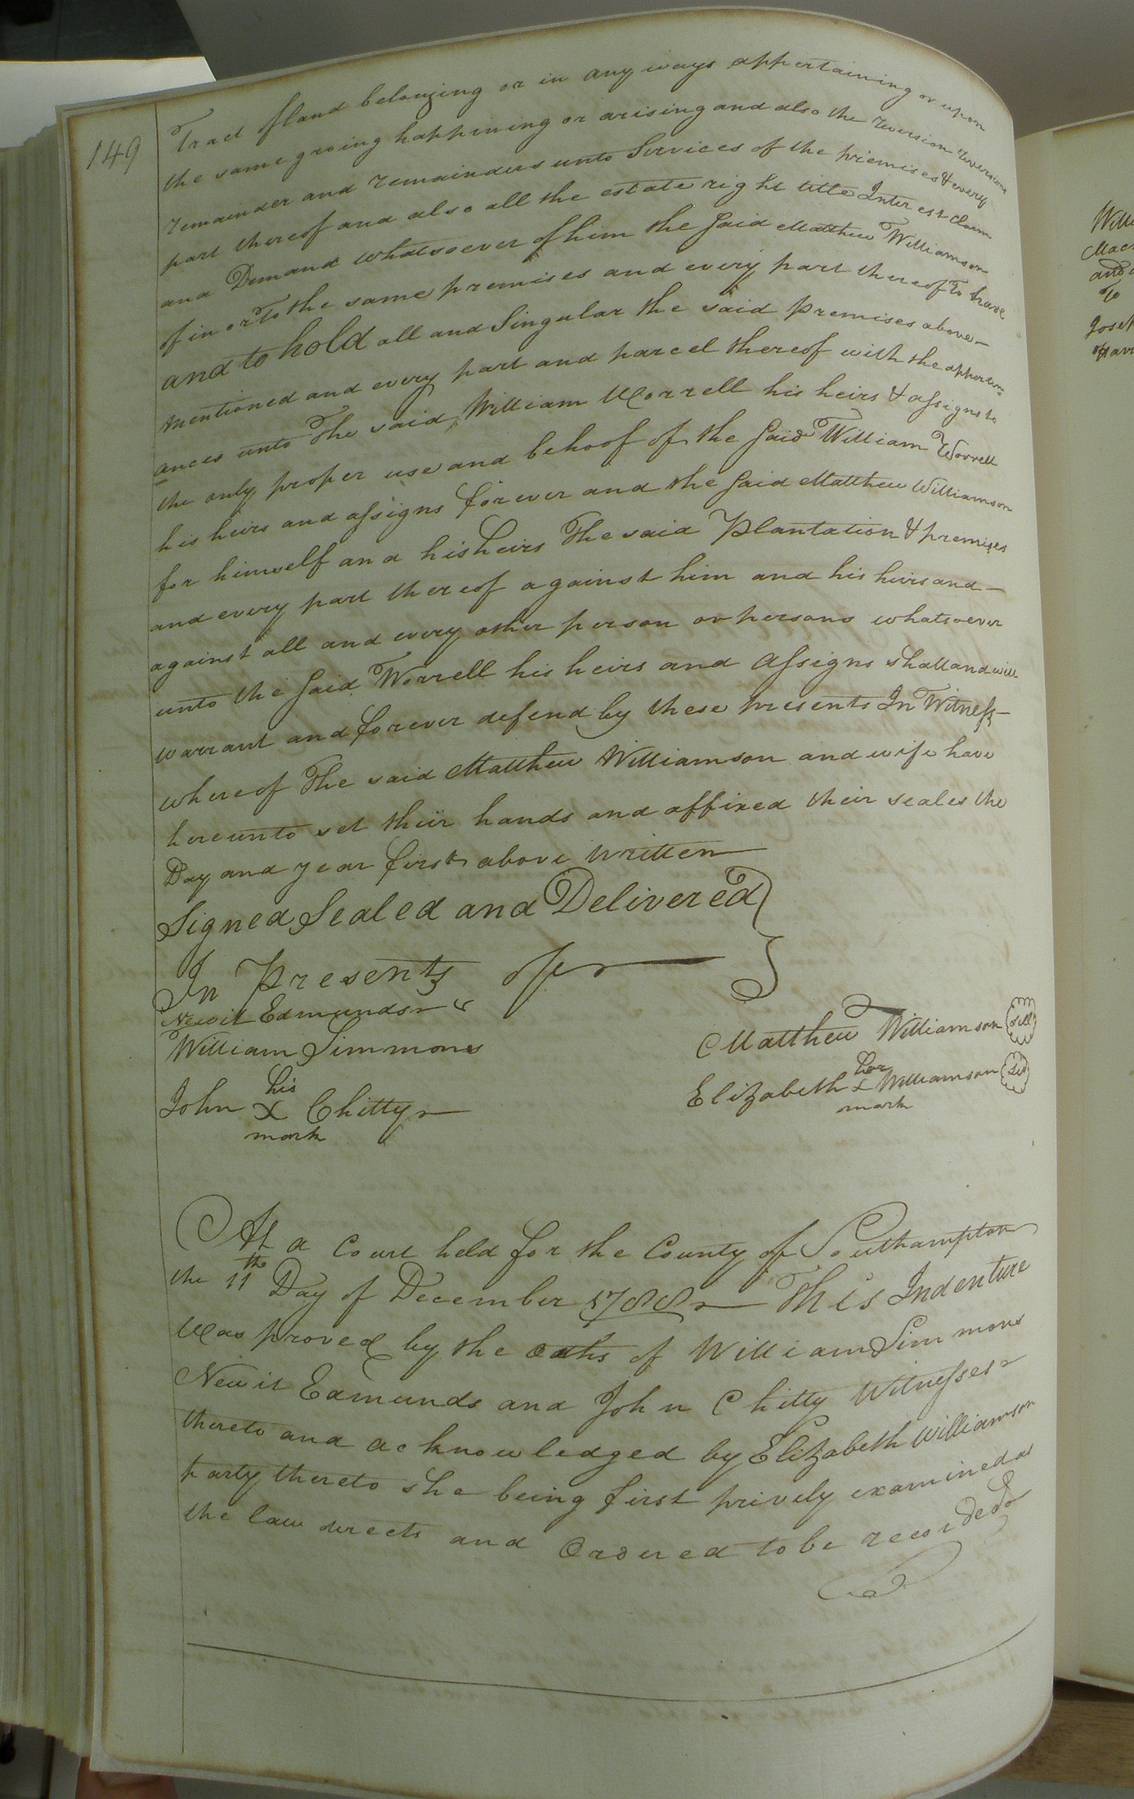 149
Tract of land belonging or in any ways appertaining or upon
the same growing happening or arising and also the reversion reversions
remainder and remainders unto Services of the premises & every
part thereof and also all the estate right title Interest claim
and Demand whatsoever of him the said Matthew Williamson
of in or To the same premises and every part thereof To have
and to hold all and Singular the said premises above-
mentioned and every part and parcel thereof with the appurten-
ances unto The said William Worrell his heirs & assigns to
the only proper use and behoof of the said William Worrell
his heirs and assigns forever and the said Matthew Williamson
for himself and his heirs The said Plantation & premises
and every part thereof against him and his heirs and
against all and every other person or persons whatsoever
unto the said Worrell his heirs and Assigns shall and will
warrant and forever defend by these presents In Witness
whereof The said Matthew Williamson and wife have
hereunto set their hands and affixed their seales the
Day and year first above written
Signed Sealed and Delivered
In Presents of
Newit Edmunds
William Simmons
John his X mark Chitty
Matthew Williamson
Elizabeth her x mark Williamson
At a Court held for the County of Southampton
the 11th Day of December 1788 This Indenture
Was proved by the oaths of William Simmons
Newit Edmunds and John Chitty Witnesses
thereto and acknowledged by Elizabeth Williamson
party thereto she being first privily examined as
the law directs and Ordered to be recorded
Josep